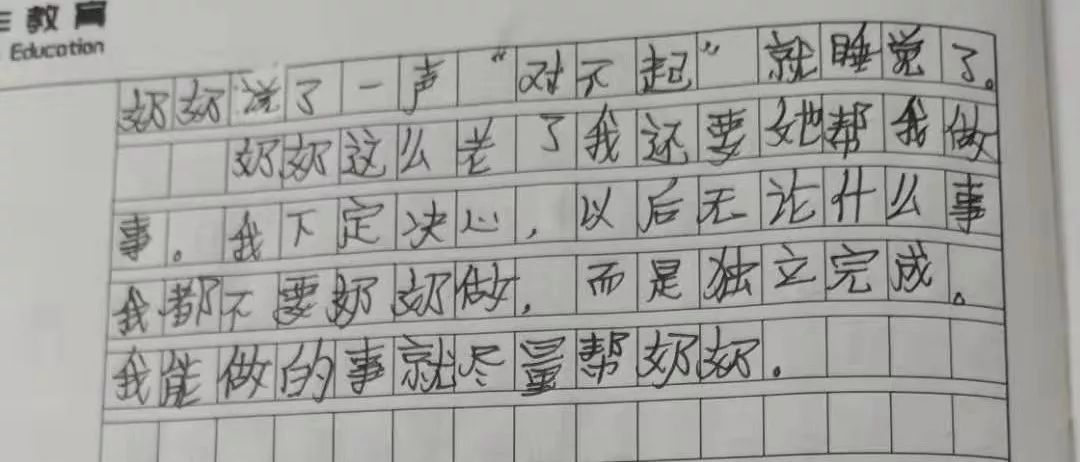 教育
Education
奶奶说了一声“对不起”就睡觉了。
奶奶这么老了我还要她帮我做
事。我下定决心，以后无论什么事
我都不要奶奶做，而是独立完成。
我能做的事就尽量帮奶奶。